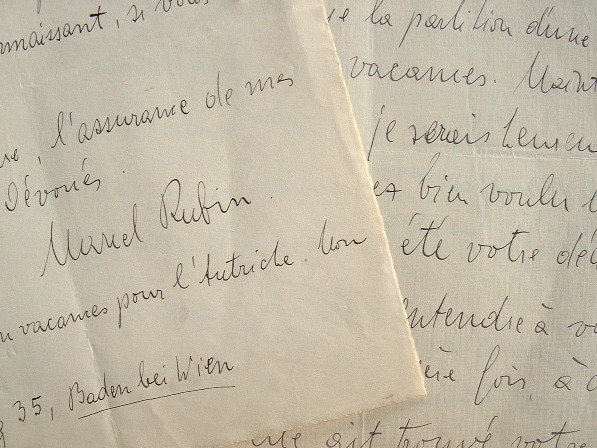 nnaissant, si vous
l'assurance de mes
Dévoués.
Marcel Rubin.
en vacances pour l'Autriche. Mon
35, Baden bei Wien
la partition d'une
vacances. Maint
je serais heureu
bien voulu l
été votre déc
entendre à vo
ière fois, à
ait trouvé votre